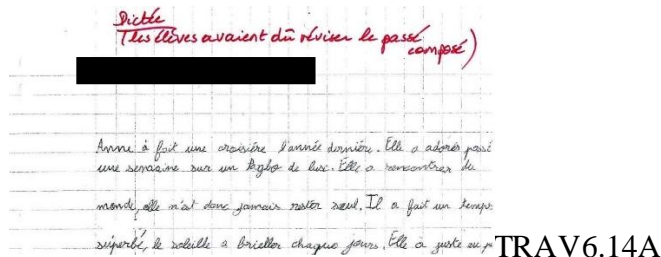 Dictée
(les élèves avaient dû réviser le passé
composé)
Anne à fait une croisière l'année dernière. Elle a adorés passé
une semaine sur un de luxe. Elle a rencontrer du
monde, elle n'ai donc jamais rester seul. Il a fait un temps
superbé, le soleille a brieller chaque jours. Elle a juste eu p
TRAV6.14A